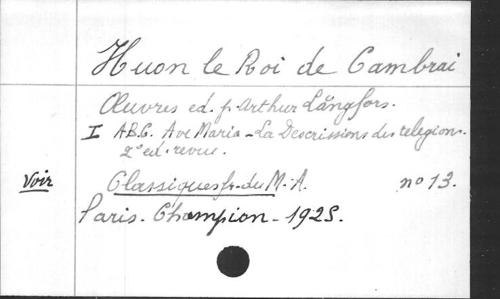 Huon le Roi de Cambrai
Œuvres ed. p. Arthur Långfors.
I ABC. Ave Maria - La Descrissions des relegions.
2e ed. revue.
Voir Classiques fr. du M.-A. no 13.
Paris. Champion - 1925.